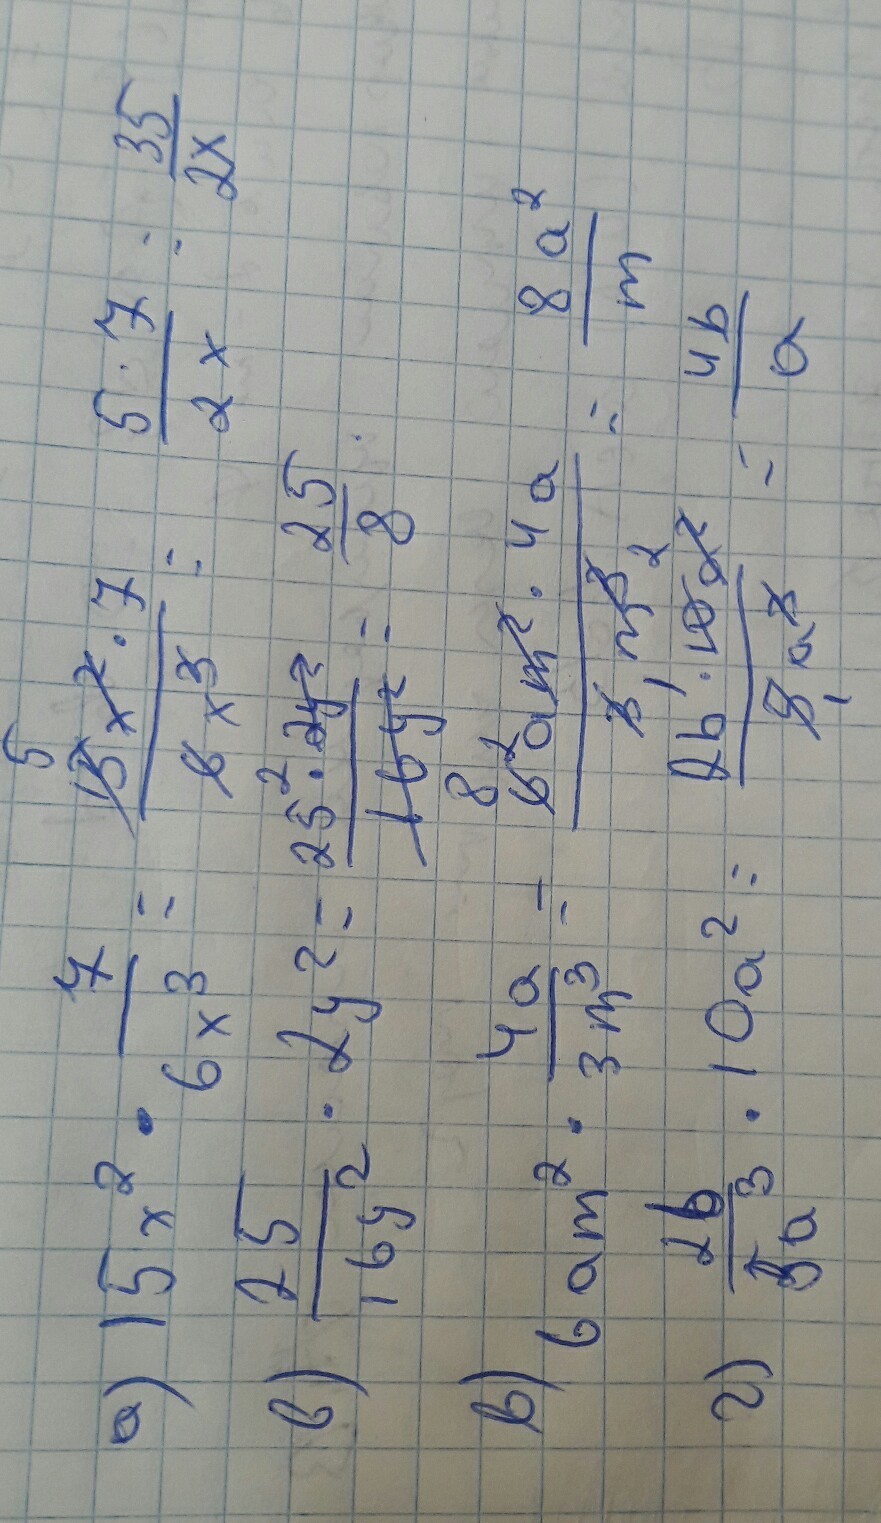 а) 15x² · 7/6x³ = 15x² · 7/6x³ = 5 · 7/2x = 35/2x
б) 25/16y² · 2y² = 25 · 2y²/16y² = 25/8
в) 6am² · 4a/3m³ = 6am² · 4a/3m³ = 8a²/m
г) 2b/5a³ · 10a² = 2b · 10a²/5a³ = 4b/a